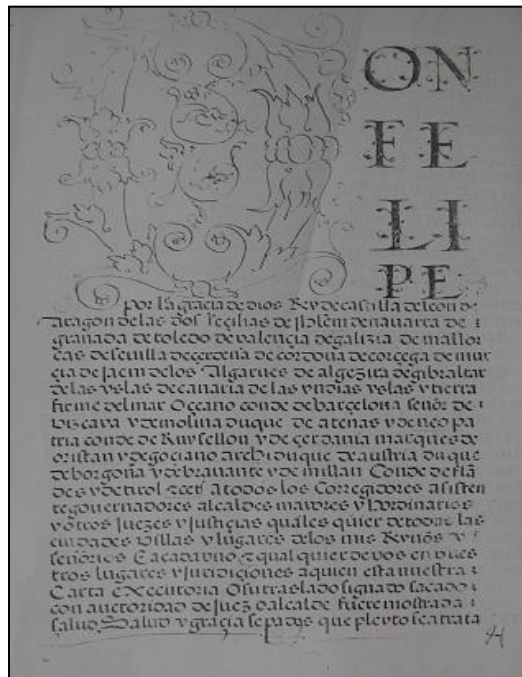 DON
FE
LI
PE
por la gracia de dios Rey de castilla de leon de
aragon de las dos secilias de Jhrlem de navarra de
granada de toledo de valencia de galizia de mallor
cas de sevilla de cerdeña de cordova de corcega de mur
cia de jaem delos Algarues de algezira de gibraltar
delas yslas de canaria de las yndias yslas y tierra
firme del mar Oceano conde de barcelona señor de
bizcaya y de molina duque de atenas y de neo pa
tria conde de Ruysellon y de cerdania marques de
oristan y de gociano archiduque de austria duque
de borgoña y de bravante y de millan Conde de flã
des y de tirol &cet atodos los Corregidores asisten
te governadores alcaldes mayores y hordinarios
y otros Juezes y Justicias quales quier de todas las
ciudades villas y lugares de los mis Rynos y
señorios E acada uno & qual quier de vos en vues
tros lugares y juridiciones aquien esta nuestra
Carta Executoria O su traslado signado sacado
con auctoridad de juez o alcalde fuere mostrada
salud Salud y gracia sepades que pleyto se a trata